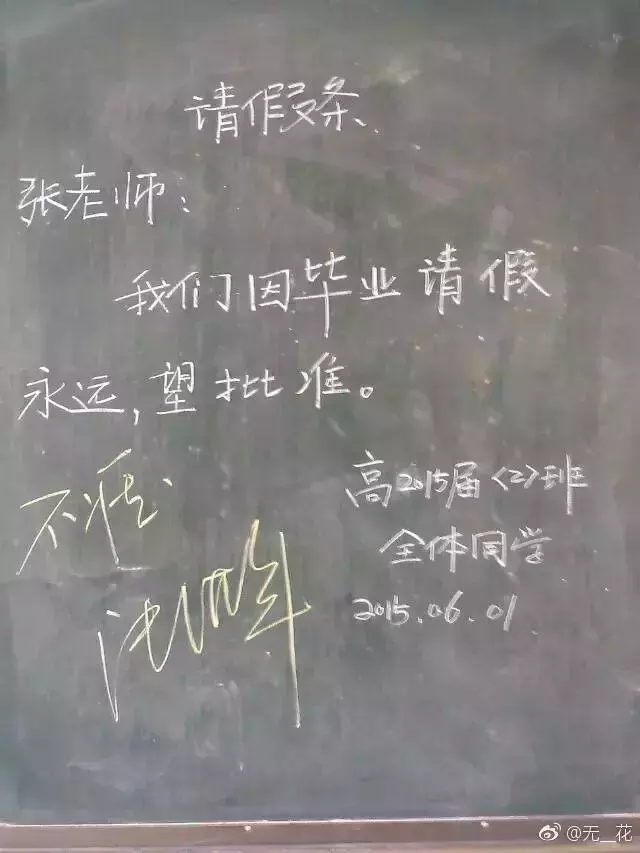 请假条
张老师：
我们因毕业请假
永远，望批准。
高2015届<2>班
全体同学
2015.06.01
不准
@无__花